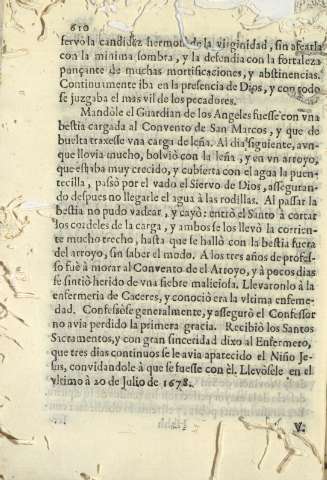 610
servò la candidez hermos. de la virginidad, sin afearla
con la minima sombra, y la defendia con la fortaleza
punçante de muchas mortificaciones, y abstinencias.
Continuamente iba en la presencia de Dios, y con todo
se juzgaba el mas vil de los pecadores.
Mandòle el Guardian de los Angeles fuesse con vna
bestia cargada al Convento de San Marcos, y que de
buelta traxesse vna carga de leña. Al dia siguiente, aun-
que llovia mucho, bolviò con la leña, y en vn arroyo,
que estaba muy crecido, y cubierta con el agua la puen-
tecilla, passò por el vado el Siervo de Dios, asseguran-
do despues no llegarle el agua à las rodillas. Al passar la
bestia no pudo vadear, y cayò: entrò el Santo à cortar
los cordeles de la carga, y ambos se los llevò la corrien-
te mucho trecho, hasta que se hallò con la bestia fuera
del arroyo, sin saber el modo. A los tres años de profes-
so fuè à morar al Convento de el Arroyo, y à pocos dias
se sintiò herido de vna fiebre maliciosa. Llevaronlo à la
enfermeria de Caceres, y conociò era la vltima enfeme-
dad. Confesòse generalmente, y assegurò el Confessor
no avia perdido la primera gracia. Recibiò los Santos
Sacramentos, y con gran sinceridad dixo al Enfermero,
que tres dias continuos se le avia aparecido el Niño Je-
sus, convidandole à que se fuesse con èl. Llevòsele en el
vltimo à 20 de Julio de 1678.
V.